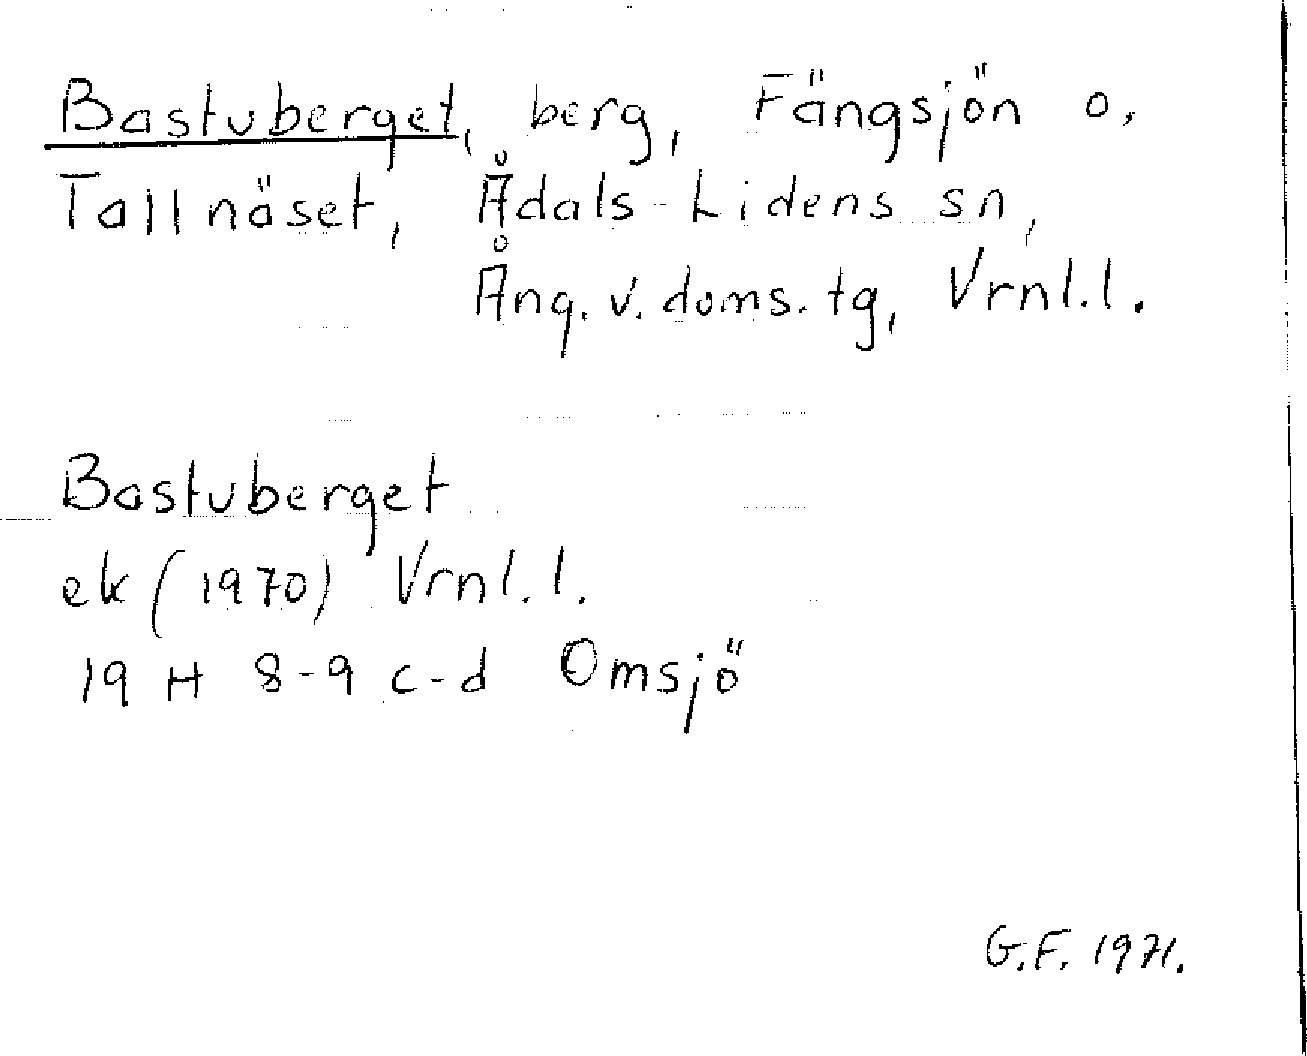 Bastuberget, berg, Fängsjön o,
Tallnäset, Ådals-Lidens sn,
Ång. v. doms. tg, Vrnl.l.
Bastuberget
ek (1970) Vrnl.l.
19 H 8-9 c-d Omsjö
G.F. 1971.